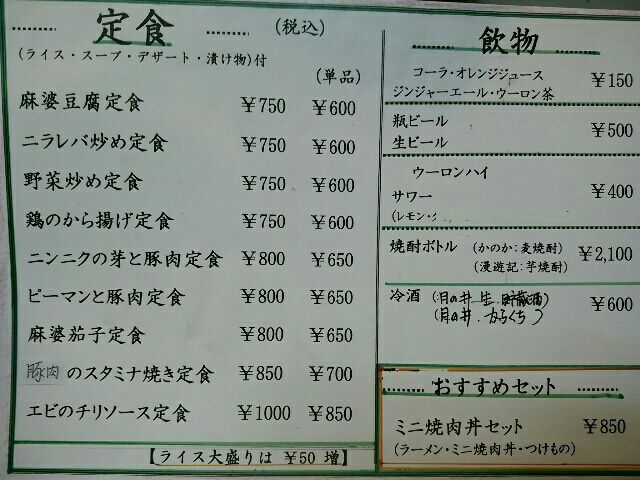 定食 (税込)
(ライス・スープ・デザート・漬け物)付
(単品)
麻婆豆腐定食 ¥750 ¥600
ニラレバ炒め定食 ¥750 ¥600
野菜炒め定食 ¥750 ¥600
鶏のから揚げ定食 ¥750 ¥600
ニンニクの芽と豚肉定食 ¥800 ¥650
ピーマンと豚肉定食 ¥800 ¥650
麻婆茄子定食 ¥800 ¥650
豚肉のスタミナ焼き定食 ¥850 ¥700
エビのチリソース定食 ¥1000 ¥850
【ライス大盛りは ¥50 増】
飲物
コーラ・オレンジジュース
ジンジャーエール・ウーロン茶 ¥150
瓶ビール
生ビール ¥500
ウーロンハイ
サワー ¥400
(レモン・
焼酎ボトル (かのか:麦焼酎) ¥2,100
(漫遊記:芋焼酎)
冷酒 (月の井 生 貯蔵酒) ¥600
(月の井 からくち)
おすすめセット
ミニ焼肉丼セット ¥850
(ラーメン・ミニ焼肉丼・つけもの)